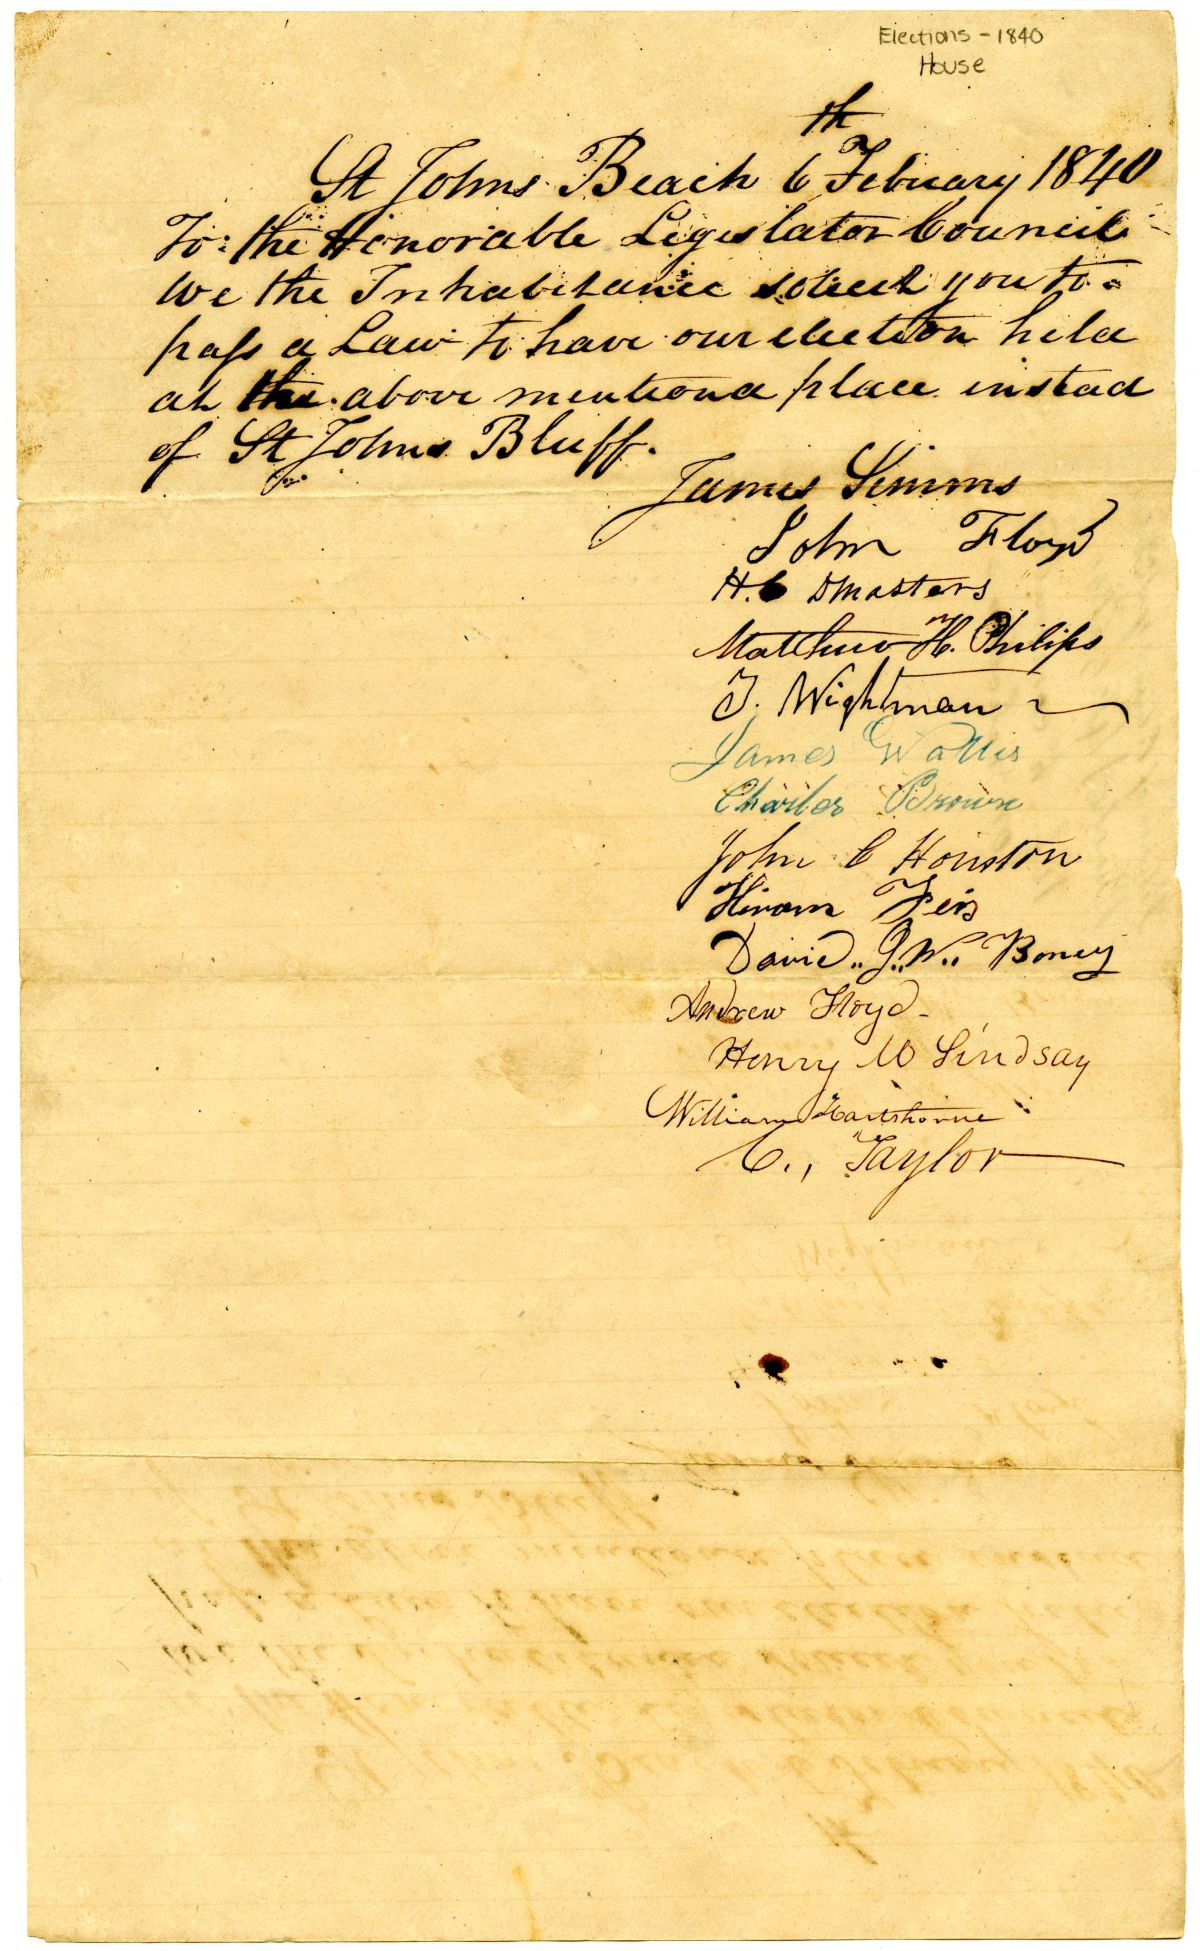 Elections - 1840
House
St Johns Beach 6th February 1840
To: the Honorable Legislator Council
We the Inhabitance solicet you to
pass a Law to have our election held
at the above mentiond place instead
of St Johns Bluff.
James Simms
John Floyd
H. C DMasters
Matthew H. Philips
J. Wightman
James Wallis
Charles Brown
John C Houston
Hiram
David,, J,, W,, Boney
Andrew Floyd
Henry M Lindsay
William Hartshorne
C., Taylor